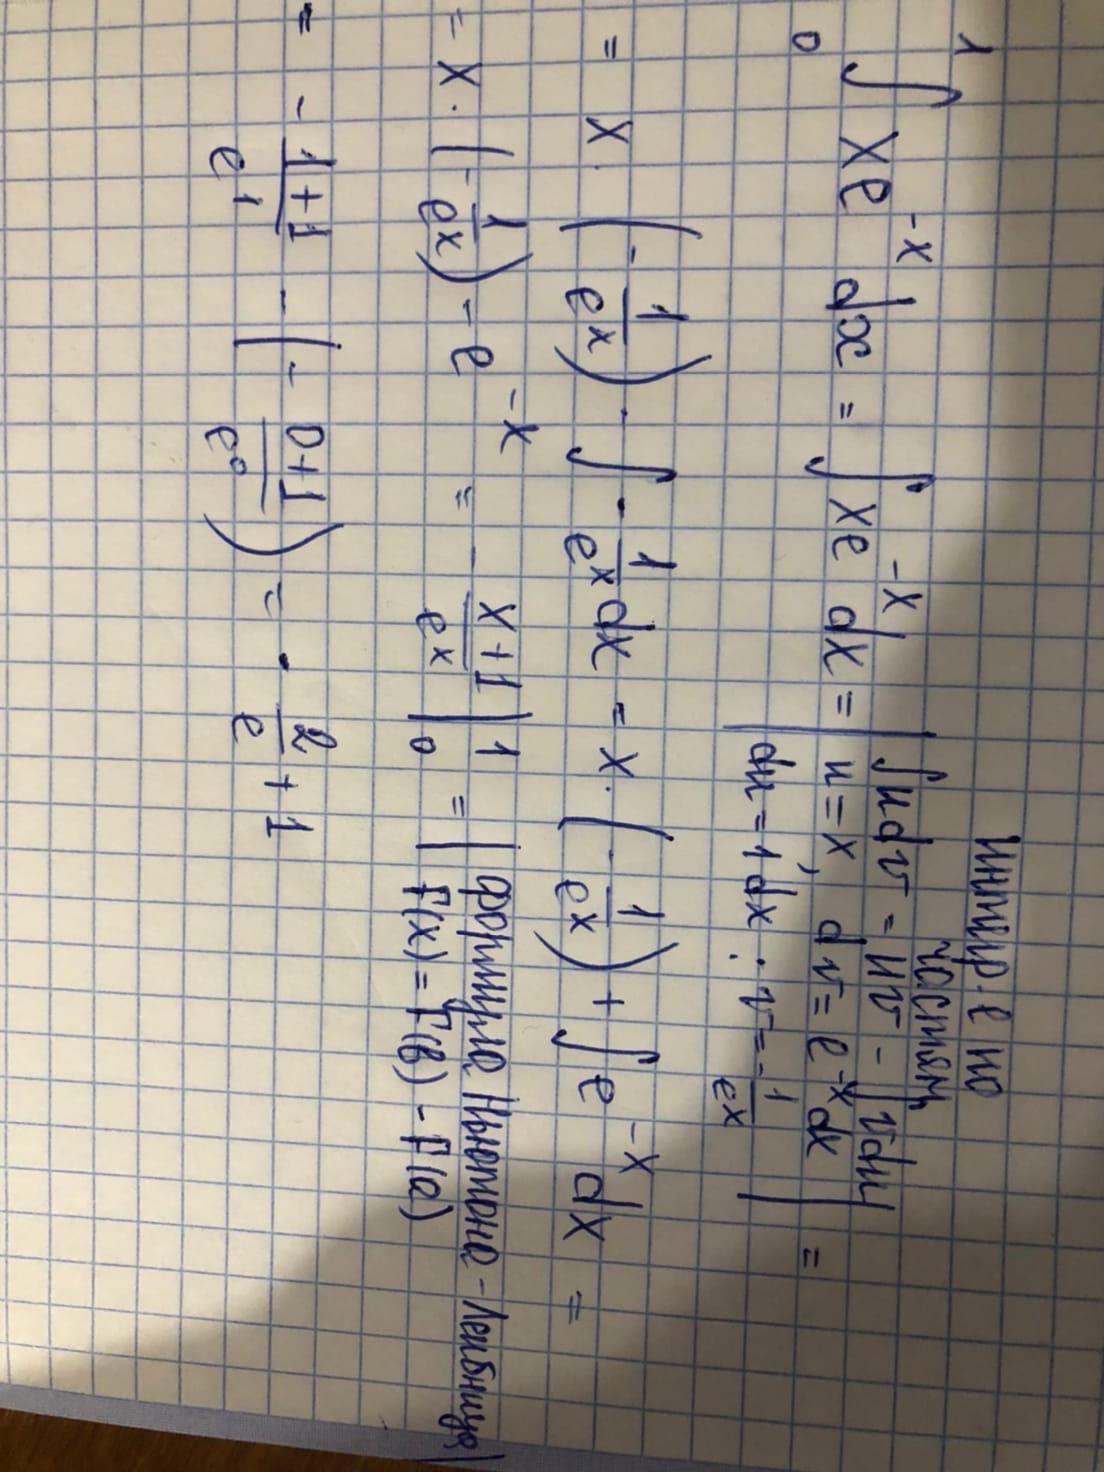 Интегр-е по
частям
1
∫ xe^{-x} dx = ∫ xe^{-x} dx = | ∫udv = uv - ∫vdu
0
u = x, dv = e^{-x}dx | =
du = 1dx ; v = -1/e^x
= x · (-1/e^x) - ∫ -1/e^x dx = x · (-1/e^x) + ∫ e^{-x} dx =
= x · (-1/e^x) - e^{-x} = - (x+1)/e^x |_0^1 = | формула Ньютона-Лейбница |
F(x) = F(b) - F(a)
= - (1+1)/e^1 - (- (0+1)/e^0) = - 2/e + 1